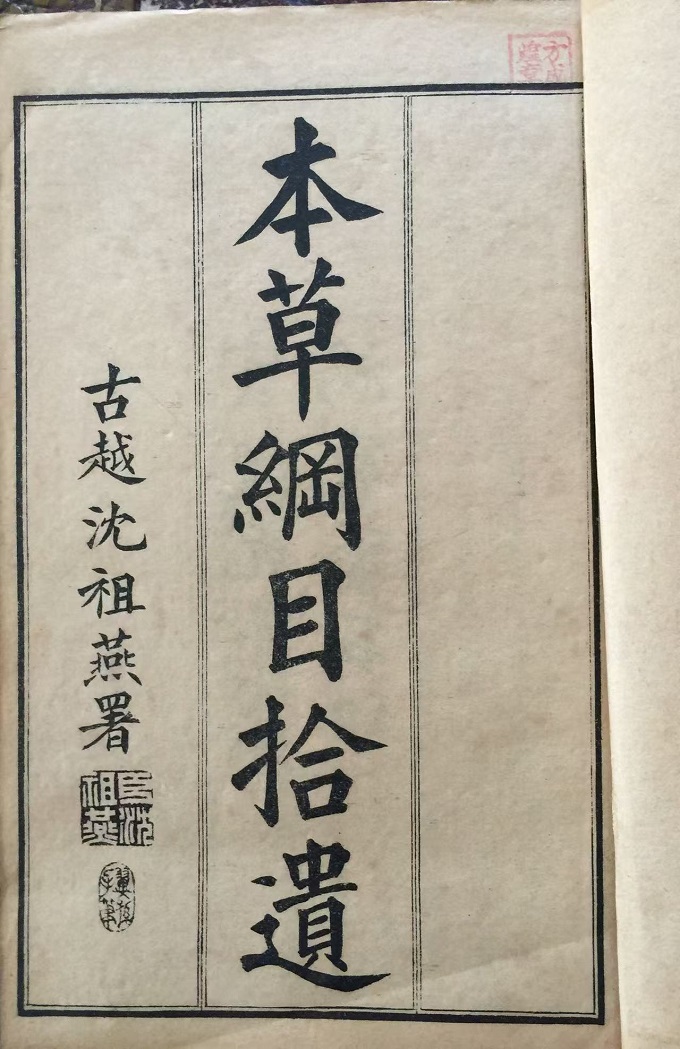 本草綱目拾遺
古越沈祖燕署
臣沈祖燕